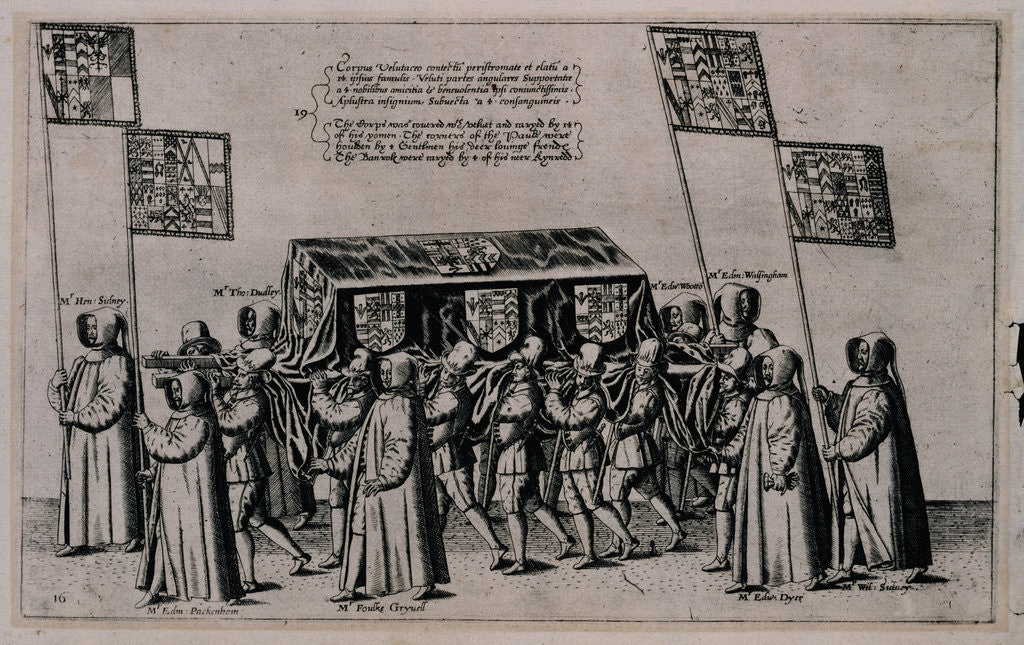 Corpus Velutaceo contectũ peristromate et elatũ a
14 ipsius famulis · Veluti partes angulares Supportatæ
a 4 · nobilibus amicitia & benevolentia ipsi coniunctissimis ·
Aplustra insignium, Subvecta · a 4 · consanguineis ·
19
The Corps was couered wth veluet and caryed by 14
of his yomen · The corners of the Paule were
houlden by 4 Gentlmen his deer louinge frends
The Banrols were caryed by 4 of his neer Kynredd
Mr Hen: Sidney ·
Mr Tho: Dudley
Mr Edw: Wotto
Mr Edm: Walsingham
16
Mr Edm: Packenham
Mr Foulke Gryuell
Mr Edw: Dyer
Mr Wil: Sidney ·